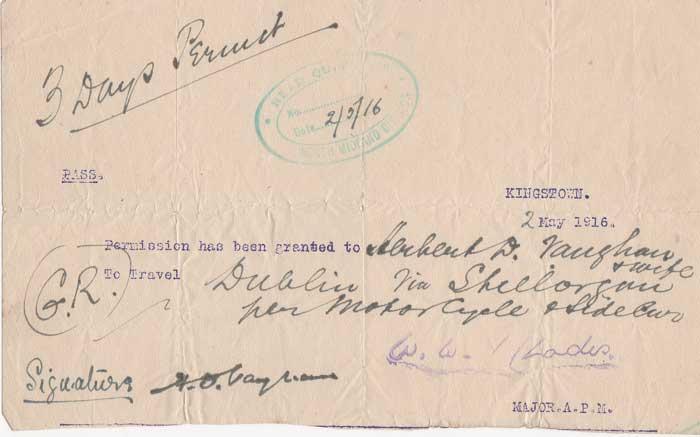 3 Days Permit
HEAD QU
No.
Date 2/5/16
NORTH MIDLAND DIV
PASS.
KINGSTOWN.
2 May 1916.
Permission has been granted to Herbert D. Vaughan
& wife
To Travel Dublin Via Stillorgan
G.R.
per Motor Cycle & Side Car
W. W.
Signature H. D. Vaughan
MAJOR.A.P.M.